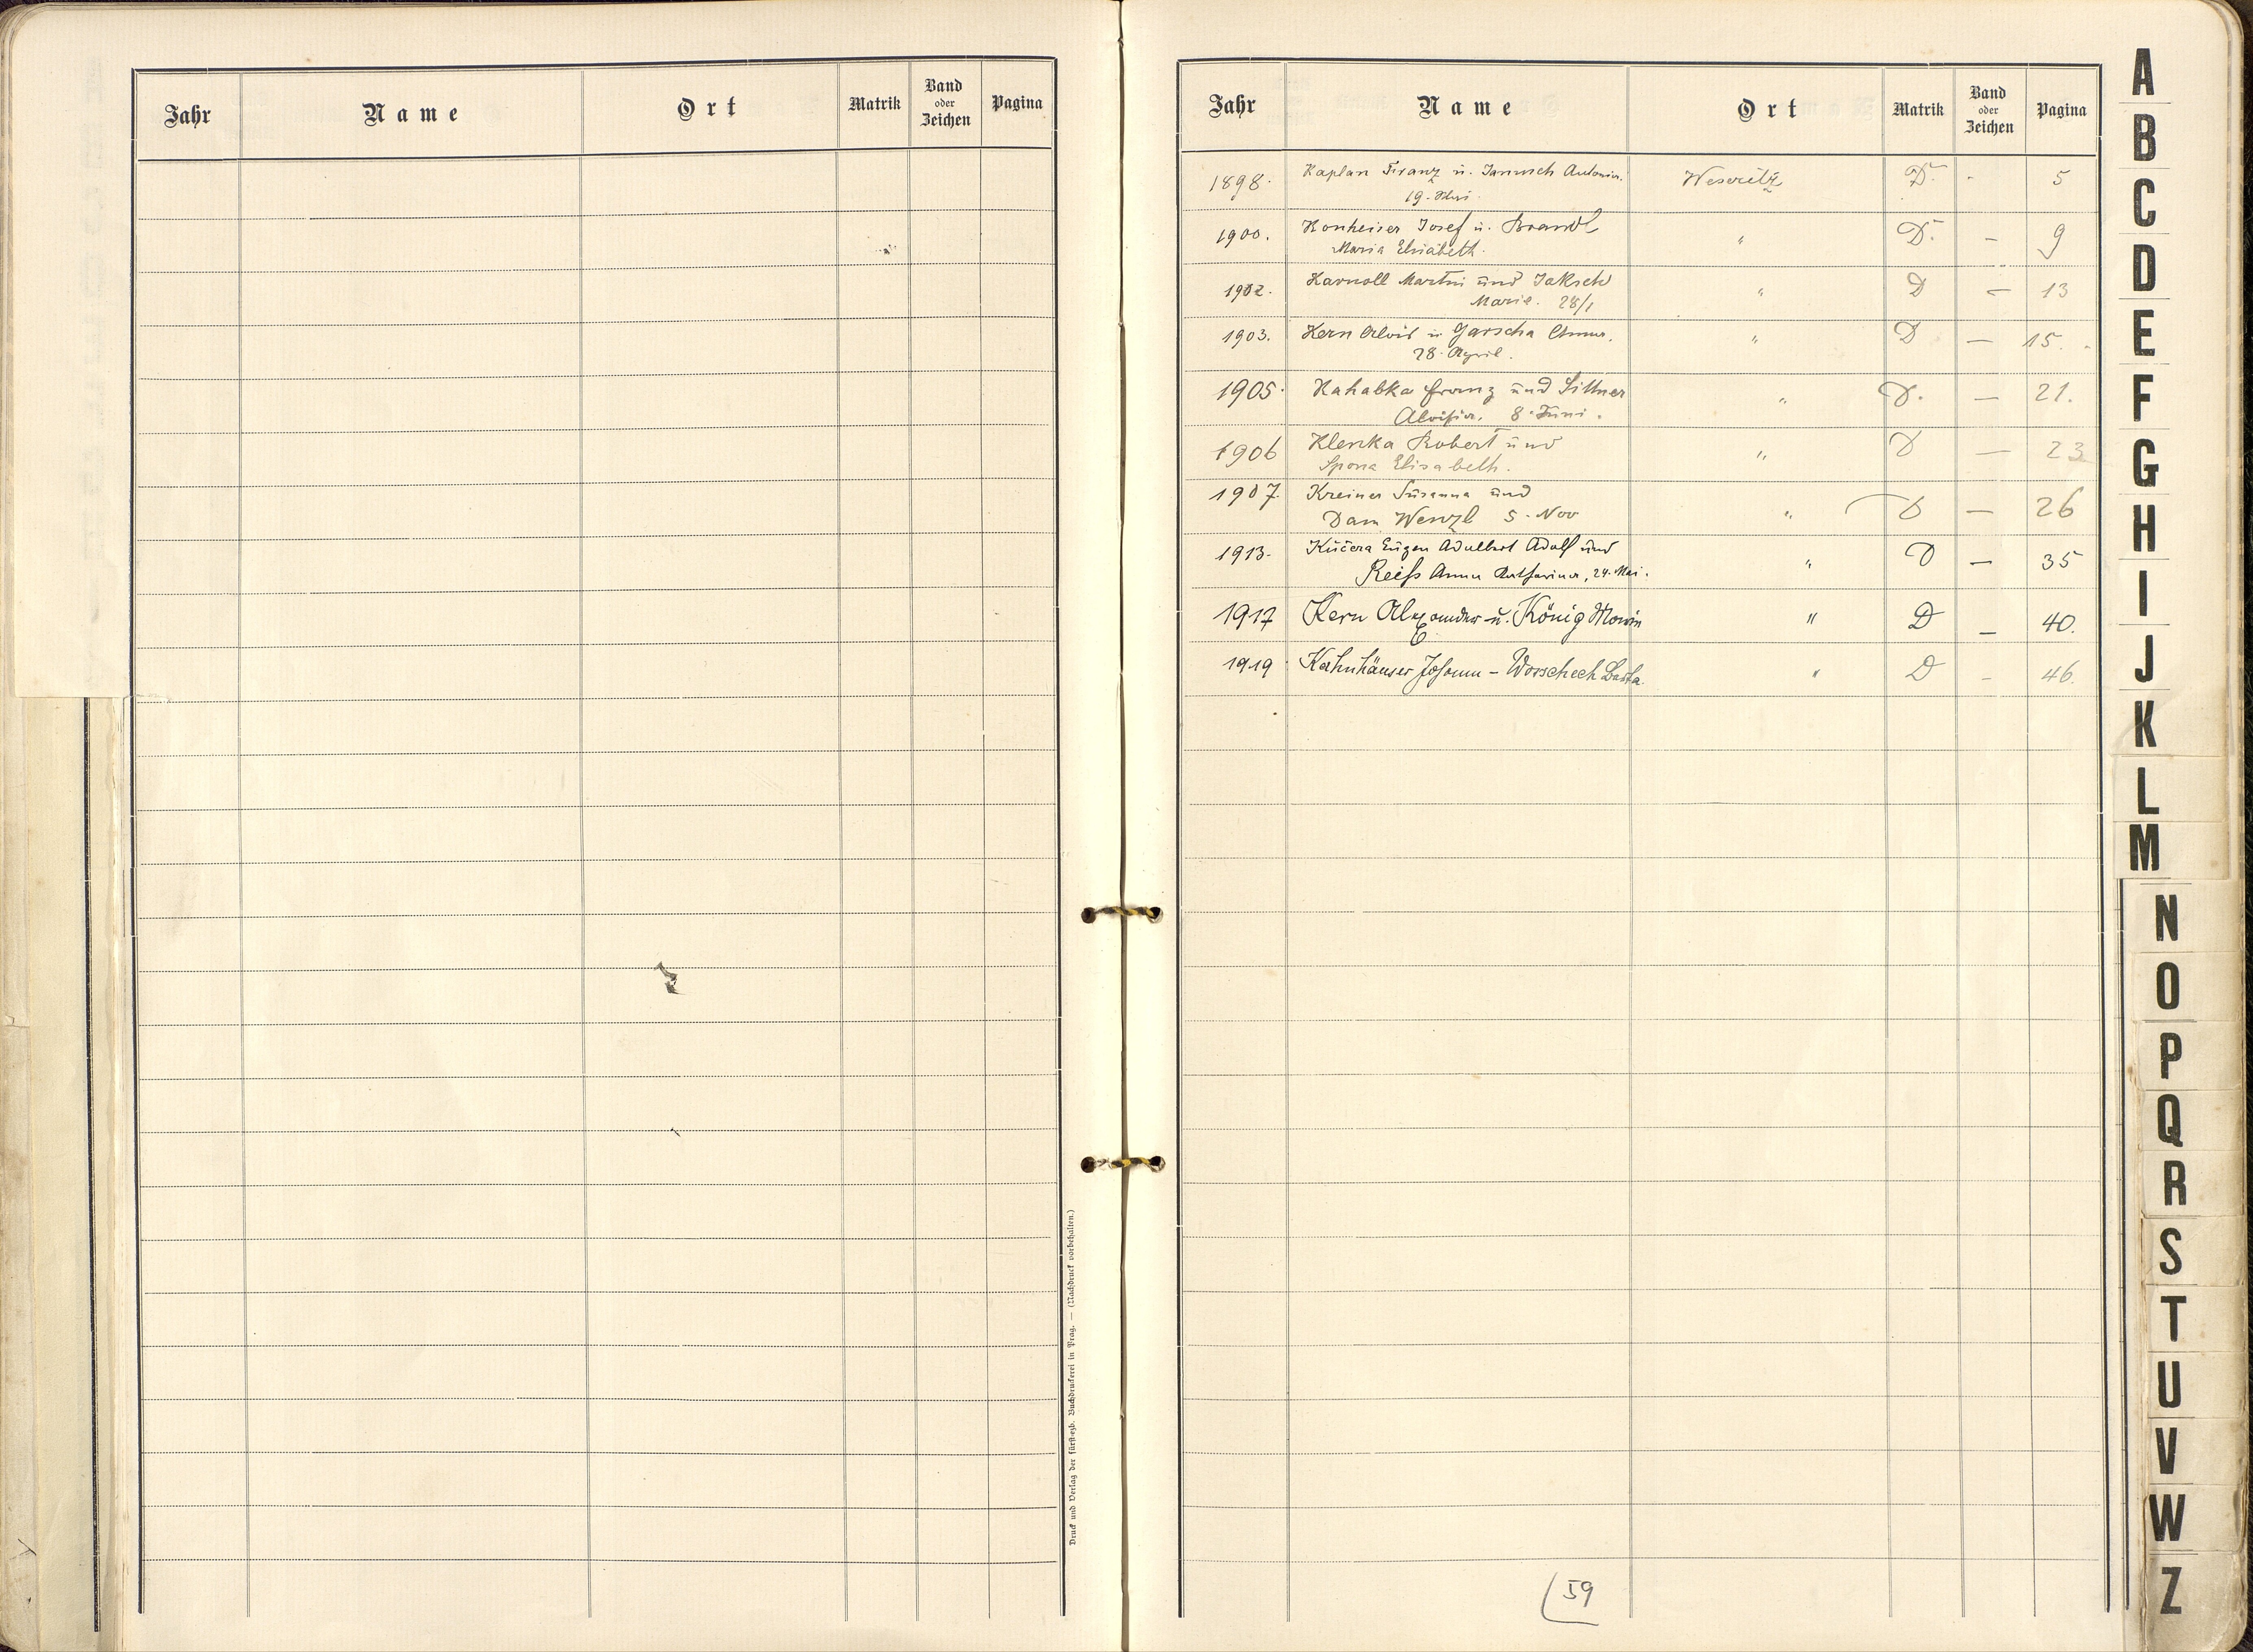 Jahr Name Ort Matrik Band oder Zeichen Pagina
Druck und Verlag der fürst-ezb. Buchdruckerei in Prag. — (Nachdruck vorbehalten.)
Jahr Name Ort Matrik Band oder Zeichen Pagina
1898. Kaplan Franz u. Janusch Antonia. Weseritz D. - 5
19.
1900. Konheiser Josef u. Brandl " D. — 9
Maria Elisabeth.
1902. Karnoll Martin und Jaksch " D — 13
Marie. 28/1
1903. Kern Alois u Garscha Anna. " D — 15.
28. April.
1905. Kahabka Franz und Sittner " D. — 21.
Aloisia. 8. Juni.
1906 Klenka Robert und " D — 23
Spona Elisabeth.
1907. Kreiner Susanna und " D — 26
Dam Wenzl 5. Nov
1913. Kučera Eugen Adalbert Adolf und " D — 35
Reiß Anna Katharina, 24. Mai.
1917 Kern Alexander u. König Maria " D — 40.
1919 Kahnhäuser Johann - Worschech " D - 46.
59
A
B
C
D
E
F
G
H
I
J
K
L
M
N
O
P
Q
R
S
T
U
V
W
Z